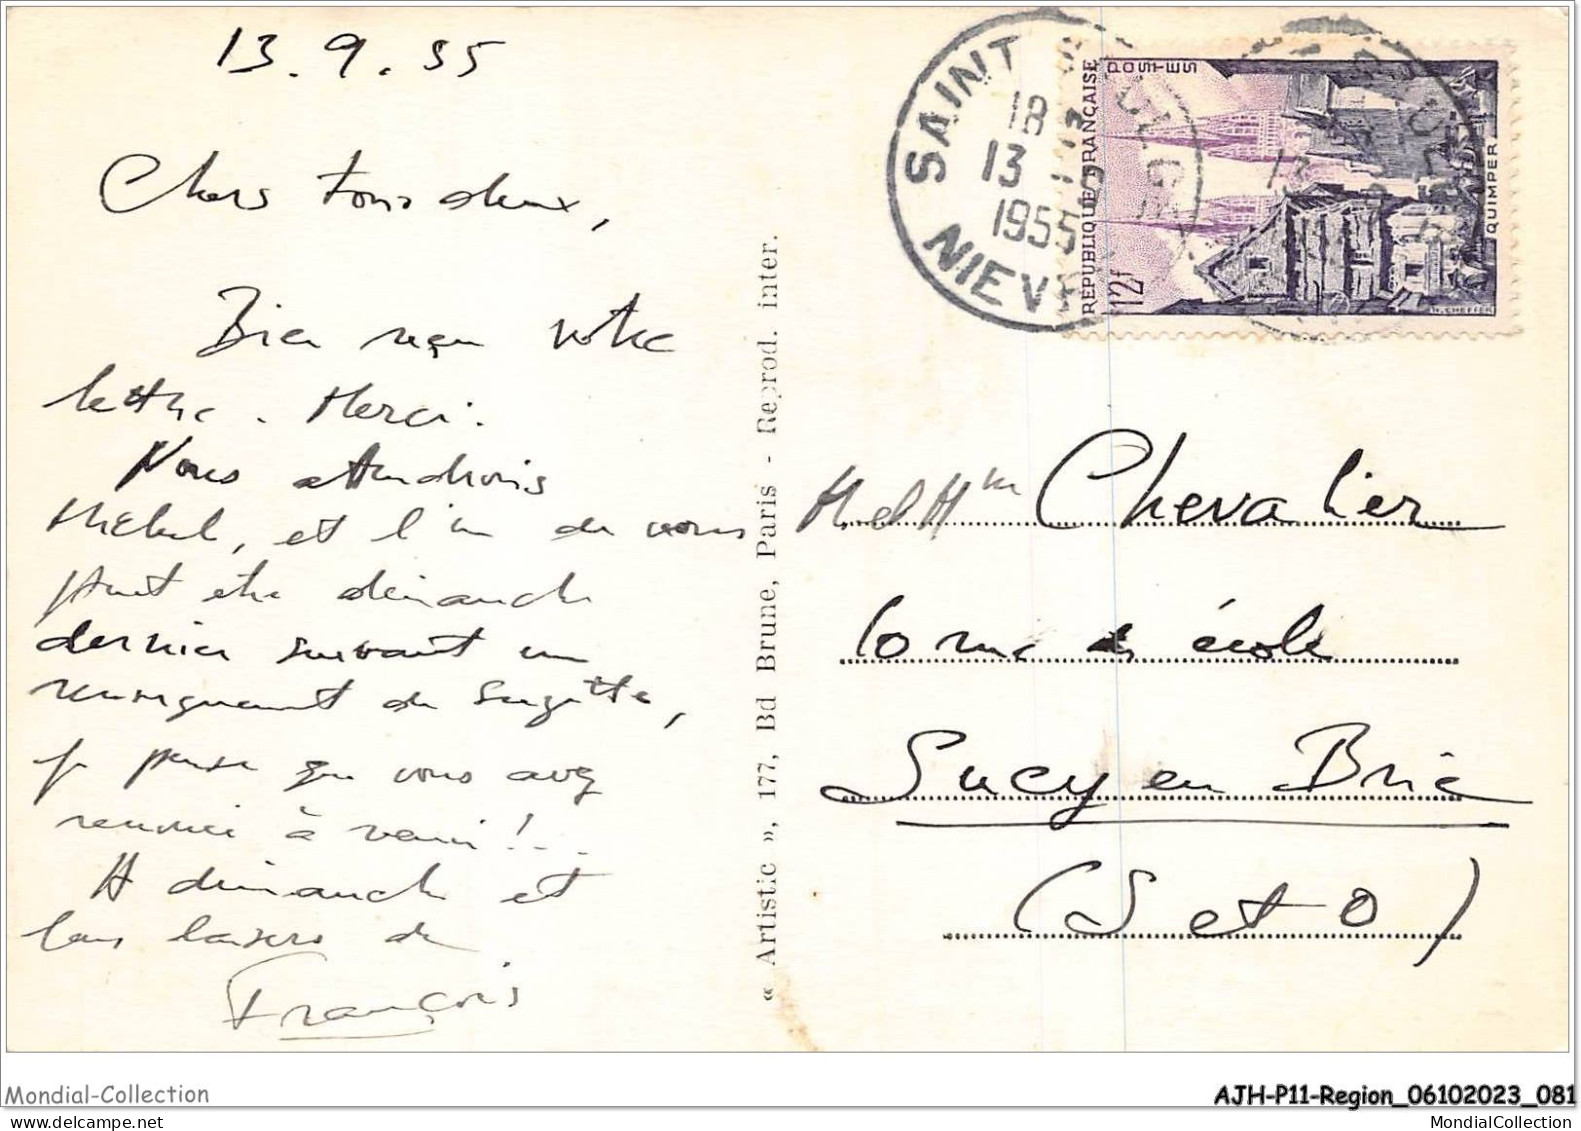 13.9.55
Chers tous deux,
Bien reçu votre
lettre. Merci.
Nous attendrons
Michel, et l'un de vous
peut être dimanche
dernier suivant un
renseignement de Suzette,
je pense que vous avez
renoncé à venir!...
A dimanche et
bons baisers de
François
« Artistic », 177, Bd Brune, Paris - Reprod. inter.
SAINT
18
13
1955
NIEV
POSTES
REPUBLIQUE FRANÇAISE
12f
QUIMPER
H. CHEFFER
M. et Mme Chevalier
10 rue des écoles
Sucy en Brie
(S et O)
Mondial-Collection
AJH-P11-Region_06102023_081
mondialcollection
MondialCollection